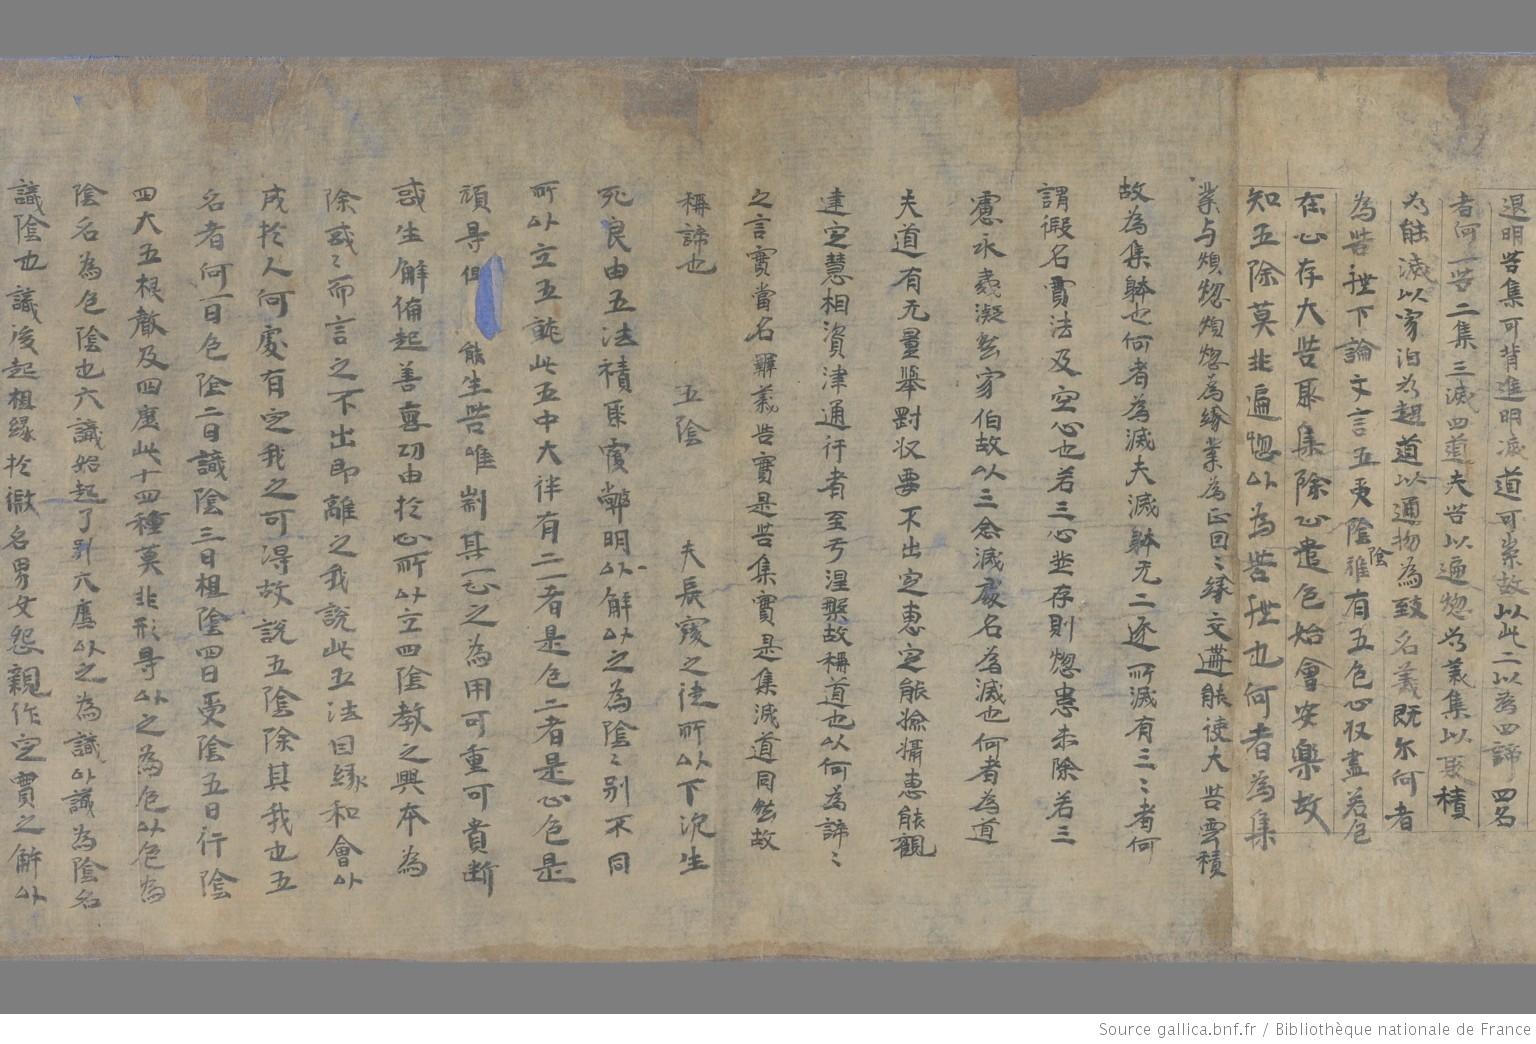 退明苦集可背進明滅道可崇故以此二以為四諦四名
者何一苦二集三滅四道夫苦以逼惱為義集以聚積
為能滅以寂泊為趣道以通物為致名義既尔何者
為苦經下論文言五受陰陰雖有五色心収盡若色
在心存大苦聚集除心遣色始會安樂故
知五除莫非逼惱以為苦經也何者為集
業与煩惚煩惚為緣業為正因〻緣交遘能使大苦雲積
故為集躰也何者為滅夫滅躰无二逐所滅有三〻者何
謂假名實法及空心也若三心並存則惚患未除若三
慮永義凝然家伯故以三念滅處名為滅也何者為道
夫道有无量舉對収要不出定惠定能攝惠能觀
達定慧相資津通行者至于涅槃故稱道也以何為諦〻
之言實當名辯義苦實是苦集實是集滅道同然故
稱諦也 五陰 夫長寢之徒所以下沉生
死良由五法積聚覆弊明以解以之為陰〻別不同
所以立五就此五中大伴有二一者是色二者是心色是
頑㝵但 能生苦唯制其心之為用可重可貴斷
或生解備起善惡功由於心所以立四陰教之興本為
除或〻而言之不出即離之我說此五法因緣和會以
成於人何處有之我之可得故說五陰除其我也五
名者何一曰色陰二曰識陰三曰相陰四曰受陰五曰行陰
四大五根敵及四塵此十四種莫非形㝵以之為色以色為
陰名為色陰也六識始起了別六塵以之為識以識為陰名
識陰也識後起相緣於微名男女怨親作定實之解以
Source gallica.bnf.fr / Bibliothèque nationale de France